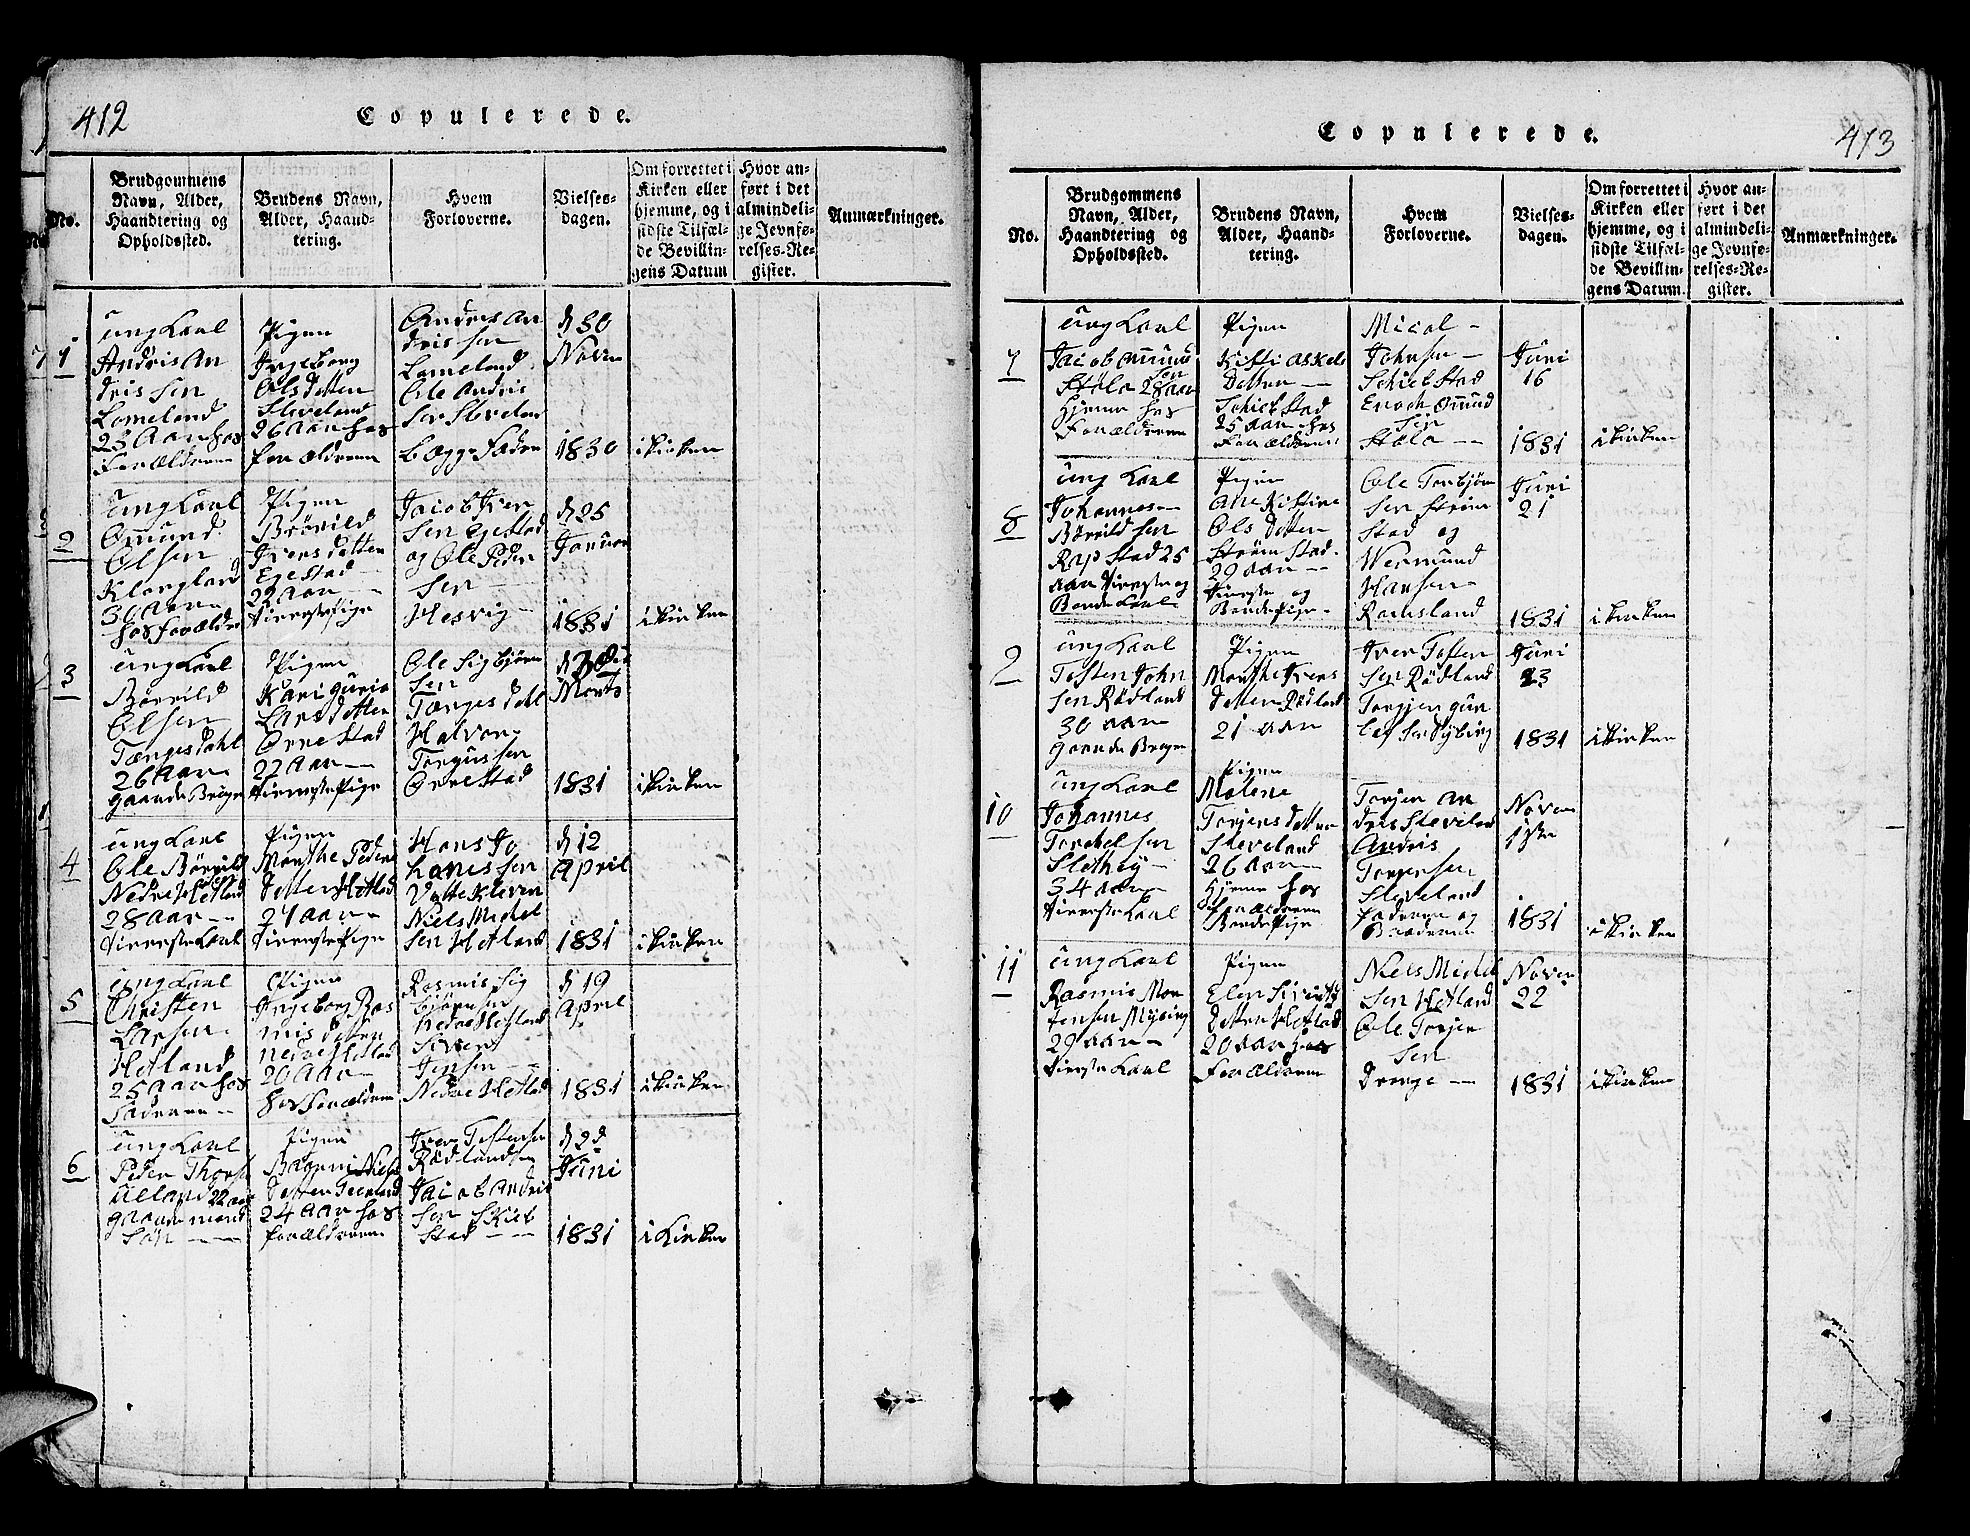 412
Copulerede.
No.
Brudgommens
Navn, Alder,
Haandtering og
Opholdssted.
Brudens Navn,
Alder, Haand-
tering.
Hvem
Forloverne.
Vielses-
dagen.
Om forrettet i
Kirken eller
hjemme, og i
sidste Tilfæl-
de Bevillin-
gens Datum
Hvor an-
ført i det
almindeli-
ge Jevnfø-
relses-Re-
gister.
Anmærkninger.
1
ung Karl
Andris An
dris sen
Lomeland
23 Aar hos
Forældrene
Pigen
Ingeborg
Ols detter
Sleveland
26 Aar hos
forældrene
Andris An
dris sen
Lomeland
Ole Andris
sen Sleveland
begge Fædre
d 30
Novem
1830
i kirken
2
ung Karl
Omund
Olsen
30 Aar
hos Forældre
Pigen
Börild
Ivers detter
Egestad
22 Aar
Tieneste Pige
Jacob Iver
sen Egestad
og Ole Peder
sen
Hesvig
d 25
Januar
1831
i kirken
3
ung Karl
Börild
Olsen
Tengesdahl
26 Aar
gaardbruger
Pigen
Kari Guria
Lars detter
Orrestad
22 Aar
Tieneste Pige
Ole Sigbjörn
sen
Tengesdahl
Halvor
Torgussen
Orrestad
Marts
1831
i kirken
4
ung Karl
Ole Börild
sen
Nedre Hetland
28 Aar
Tieneste Karl
Pigen
Marthe Peders
detter Hetland
24 Aar
Tieneste Pige
Hans Jo
hanissen
Niels Michel
sen Hetland
d 12
April
1831
i kirken
5
ung Karl
Christen
Larsen
Hetland
25 Aar hos
Faderen
Pigen
Ingeborg Ras
mis detter
Nedre Hetland
20 Aar
hos Forældrene
Rasmis Sig
bjørnsen
Nedre Hetland
Siver
Jensen
Nedre Hetland
d 19
April
1831
i kirken
6
ung Karl
Peder Thors
Ueland 22 aar
gaardmand
Sön
Pigen
Niels
detter
24 Aar hos
forældrene
Iver Tostensen
Rødland
Jacob Andris
sen Skieb
stad
d 2d
Juni
1831
i Kirken
413
Copulerede.
No.
Brudgommens
Navn, Alder,
Haandtering og
Opholdssted.
Brudens Navn,
Alder, Haand-
tering.
Hvem
Forloverne.
Vielses-
dagen.
Om forrettet i
Kirken eller
hjemme, og i
sidste Tilfæl-
de Bevillin-
gens Datum.
Hvor an-
ført i det
almindeli-
ge Jevnfø-
relses-Re-
gister.
Anmærkninger.
7
ung Karl
Jacob Omund
sen
Støle 28 aar
hjeme hos
Forældrene
Pigen
Kisti Askels
Detter
Schiebstad
25 aar hos
Forældrene
Micel
Johnsen
Schiebstad
Enoch Omund
sen
Støle
Juni
16
1831
i kirken
8
ung Karl
Johannes
Börildsen
Rapstad 25
aar Tieneste og
Bonde Karl
Pigen
Ane Kistine
Ols Detter
Strömstad
29 aar
Tieneste og
Bonde Pige
Ole Torbjörn
sen Ström
stad og
Wermund
Hansen
Ramsland
Juni
21
1831
i kirken
9
ung Karl
Tosten John
sen Rødland
30 aar
gaardebruger
Pigen
Marthe Ivers
detter Rødland
21 aar
Iver Tosten
sen Rødland
Juni
23
1831
i kirken
10
ung Karl
Johannes
Torkelsen
Slethey
34 aar
Tieneste Karl
Pigen
Malene
Torjers detter
Sleveland
26 aar
hjeme hos
Forældrene
Bonde Pige
Torjer An
dris Sleveland
Andris
Torjersen
Sleveland
Faderen og
Broderen
Novem
1ste
1831
i kirken
11
ung Karl
Rasmis Mor
tensen Mysing
29 aar
Tieneste Karl
Pigen
detter Hetland
20 aar hos
Forældrene
Niels Michel
sen Hetland
Ole Torjer
sen
Drenge
Novem
22
1831
i kirken